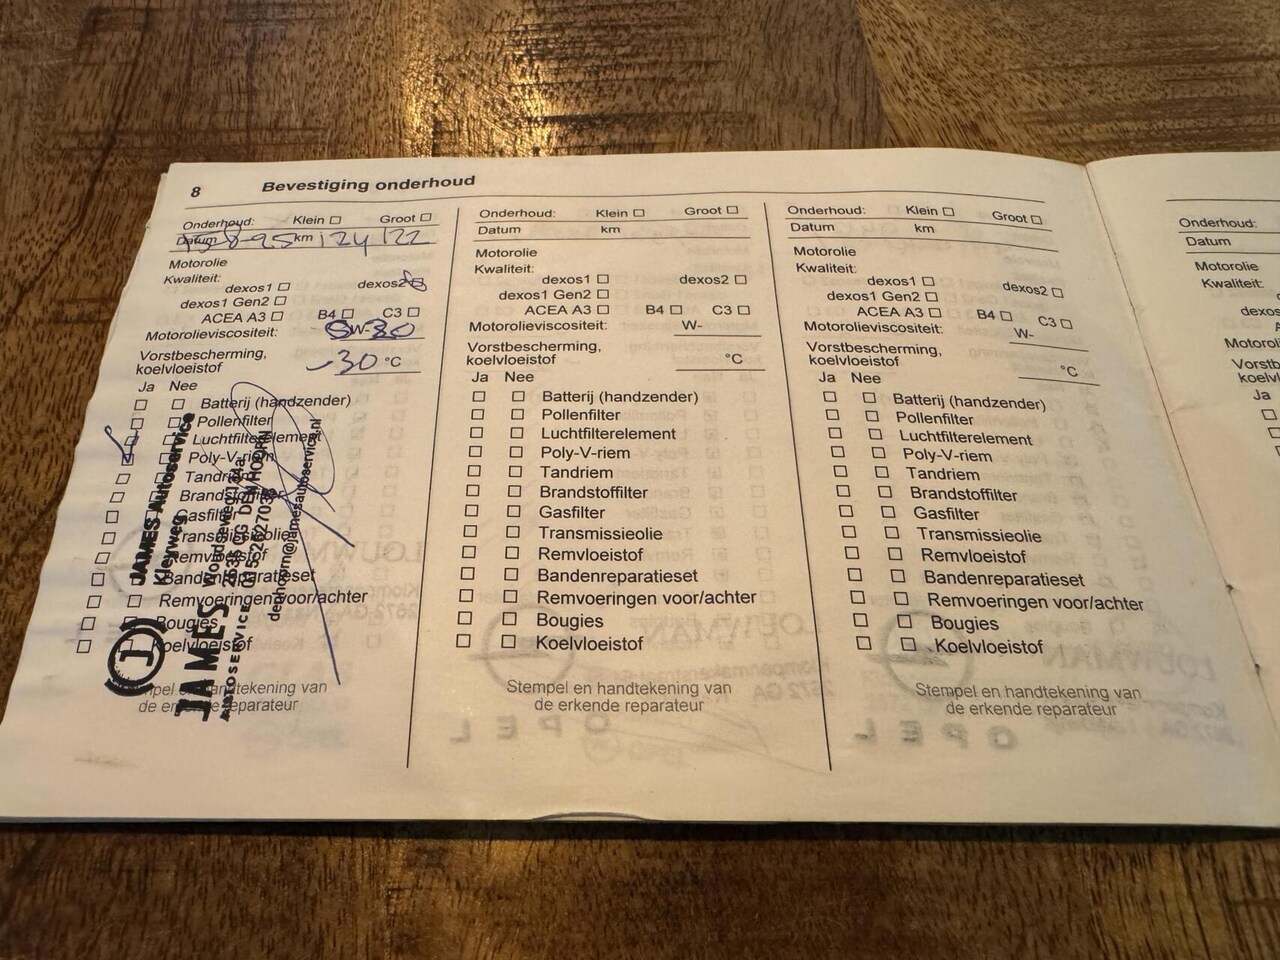 8 Bevestiging onderhoud
Onderhoud: Klein Groot
Datum 8-25 km 124 122
Motorolie
Kwaliteit:
dexos1 dexos2
dexos1 Gen2
ACEA A3 B4 C3
Motorolieviscositeit: 5W-30
Vorstbescherming,
koelvloeistof -30 °C
Ja Nee
Batterij (handzender)
Pollenfilter
Luchtfilterelement
Poly-V-riem
Tandriem
Brandstoffilter
Gasfilter
Transmissieolie
Remvloeistof
Bandenreparatieset
Remvoeringen voor/achter
Bougies
Koelvloeistof
Stempel en handtekening van
de erkende reparateur
JAMES Autoservice
Kleyweg
JAMES
AUTOSERVICE
DEN HOORN
denhoorn@jamesautoservice.nl
Onderhoud: Klein Groot
Datum km
Motorolie
Kwaliteit:
dexos1 dexos2
dexos1 Gen2
ACEA A3 B4 C3
Motorolieviscositeit: W-
Vorstbescherming,
koelvloeistof °C
Ja Nee
Batterij (handzender)
Pollenfilter
Luchtfilterelement
Poly-V-riem
Tandriem
Brandstoffilter
Gasfilter
Transmissieolie
Remvloeistof
Bandenreparatieset
Remvoeringen voor/achter
Bougies
Koelvloeistof
Stempel en handtekening van
de erkende reparateur
Onderhoud: Klein Groot
Datum km
Motorolie
Kwaliteit:
dexos1 dexos2
dexos1 Gen2
ACEA A3 B4 C3
Motorolieviscositeit: W-
Vorstbescherming,
koelvloeistof °C
Ja Nee
Batterij (handzender)
Pollenfilter
Luchtfilterelement
Poly-V-riem
Tandriem
Brandstoffilter
Gasfilter
Transmissieolie
Remvloeistof
Bandenreparatieset
Remvoeringen voor/achter
Bougies
Koelvloeistof
Stempel en handtekening van
de erkende reparateur
Onderhoud:
Datum
Motorolie
Kwaliteit:
Ja